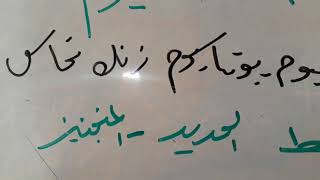 يوم
يوم - بوتاسيوم زنك نحاس
الحديد - المنجنيز